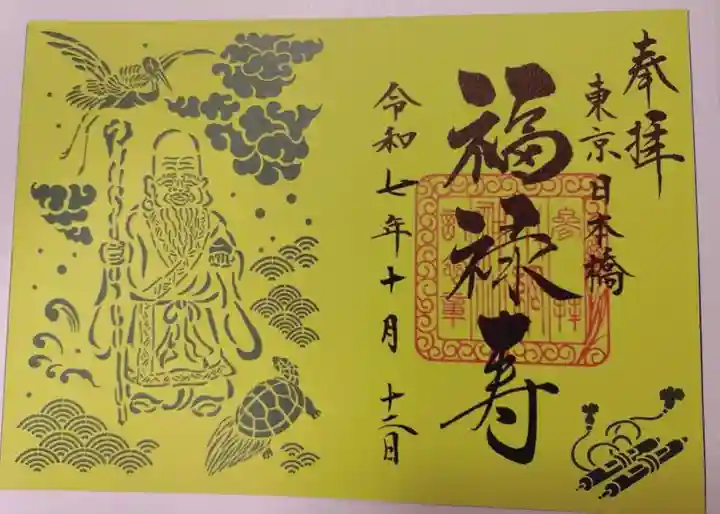 奉拝
東京日本橋
福禄寿
令和七年十月十二日